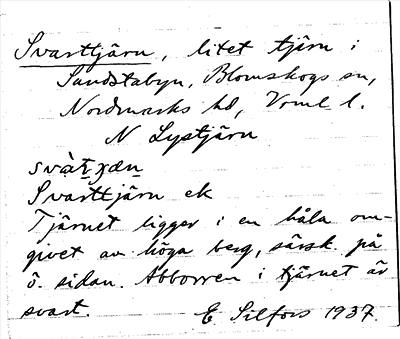 Svarttjärn, litet tjärn i
Sandstabyn, Blomskogs sn,
Nordmarks hd, Verml l.
N Lystjärn
Svarttjärn ek
Tjärnet ligger i en håla om-
givet av höga berg, särsk. på
ö. sidan. Abborren i tjärnet är
svart.
E. Silfors 1937.